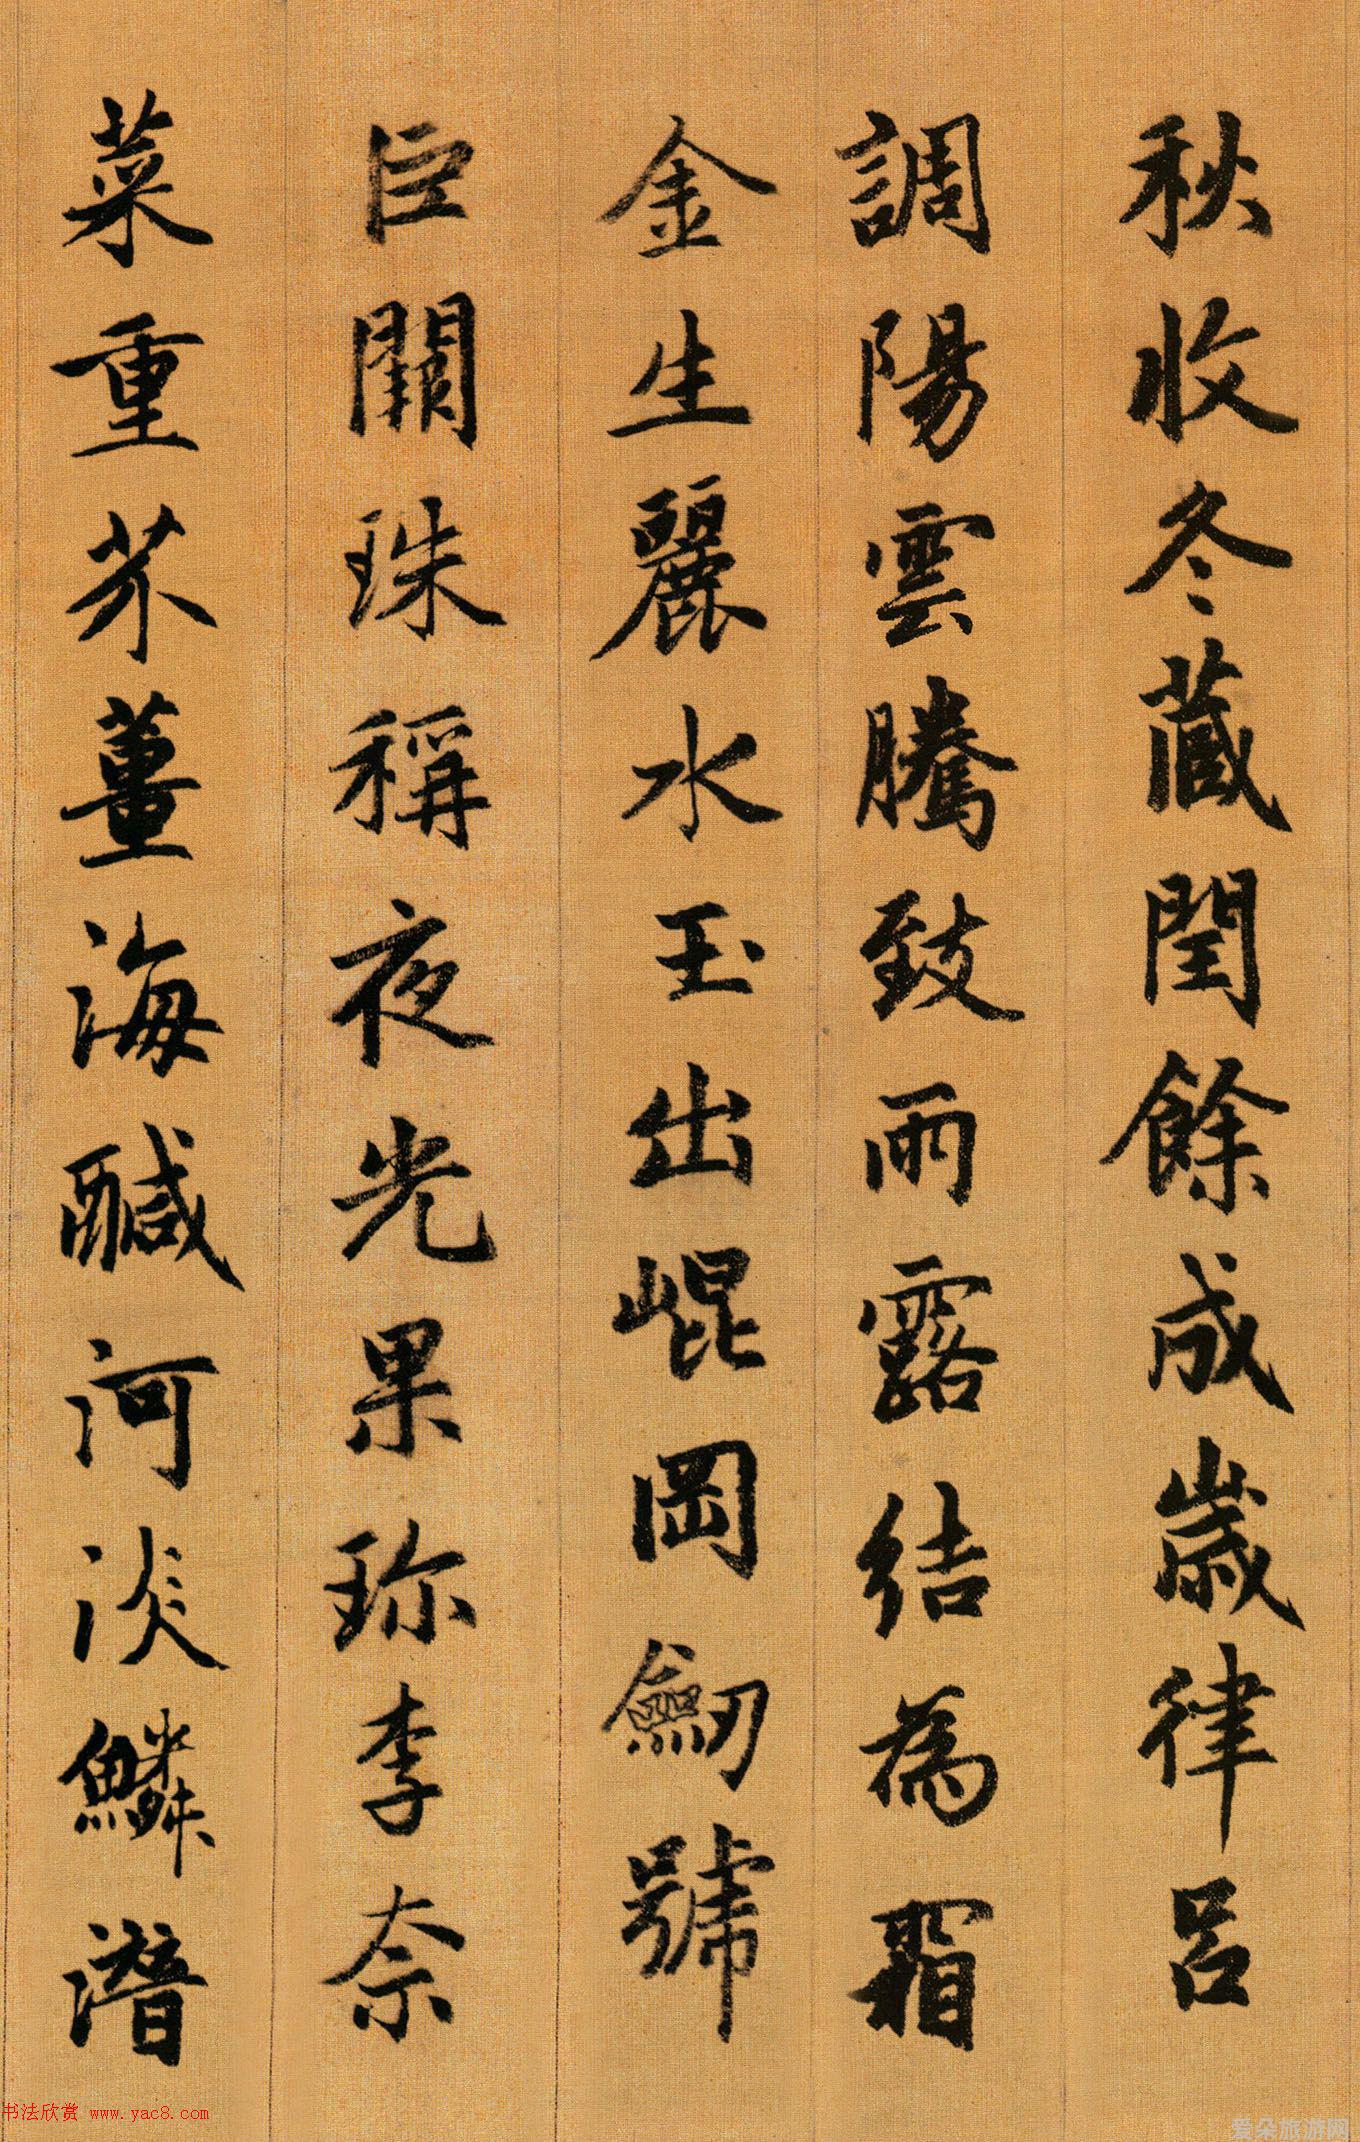 秋收冬藏閏餘成歲律呂
調陽雲騰致雨露結為霜
金生麗水玉出崐岡劒號
巨闕珠稱夜光果珎李柰
菜重芥薑海鹹河淡鱗潛
书法欣赏 www.yac8.com
爱朵旅游网